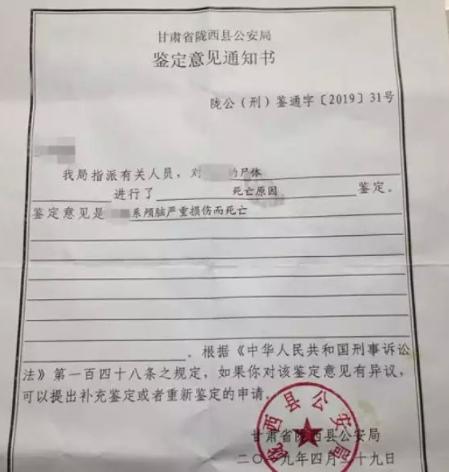 甘肃省陇西县公安局
鉴定意见通知书
陇公（刑）鉴通字〔2019〕31号
我局指派有关人员，对 的尸体
进行了 死亡原因 鉴定。
鉴定意见是 系颅脑严重损伤而死亡
。根据《中华人民共和国刑事诉讼
法》第一百四十八条之规定，如果你对该鉴定意见有异议，
可以提出补充鉴定或者重新鉴定的申请。
陇西县公安局
甘肃省陇西县公安局
二〇一九年四月二十九日